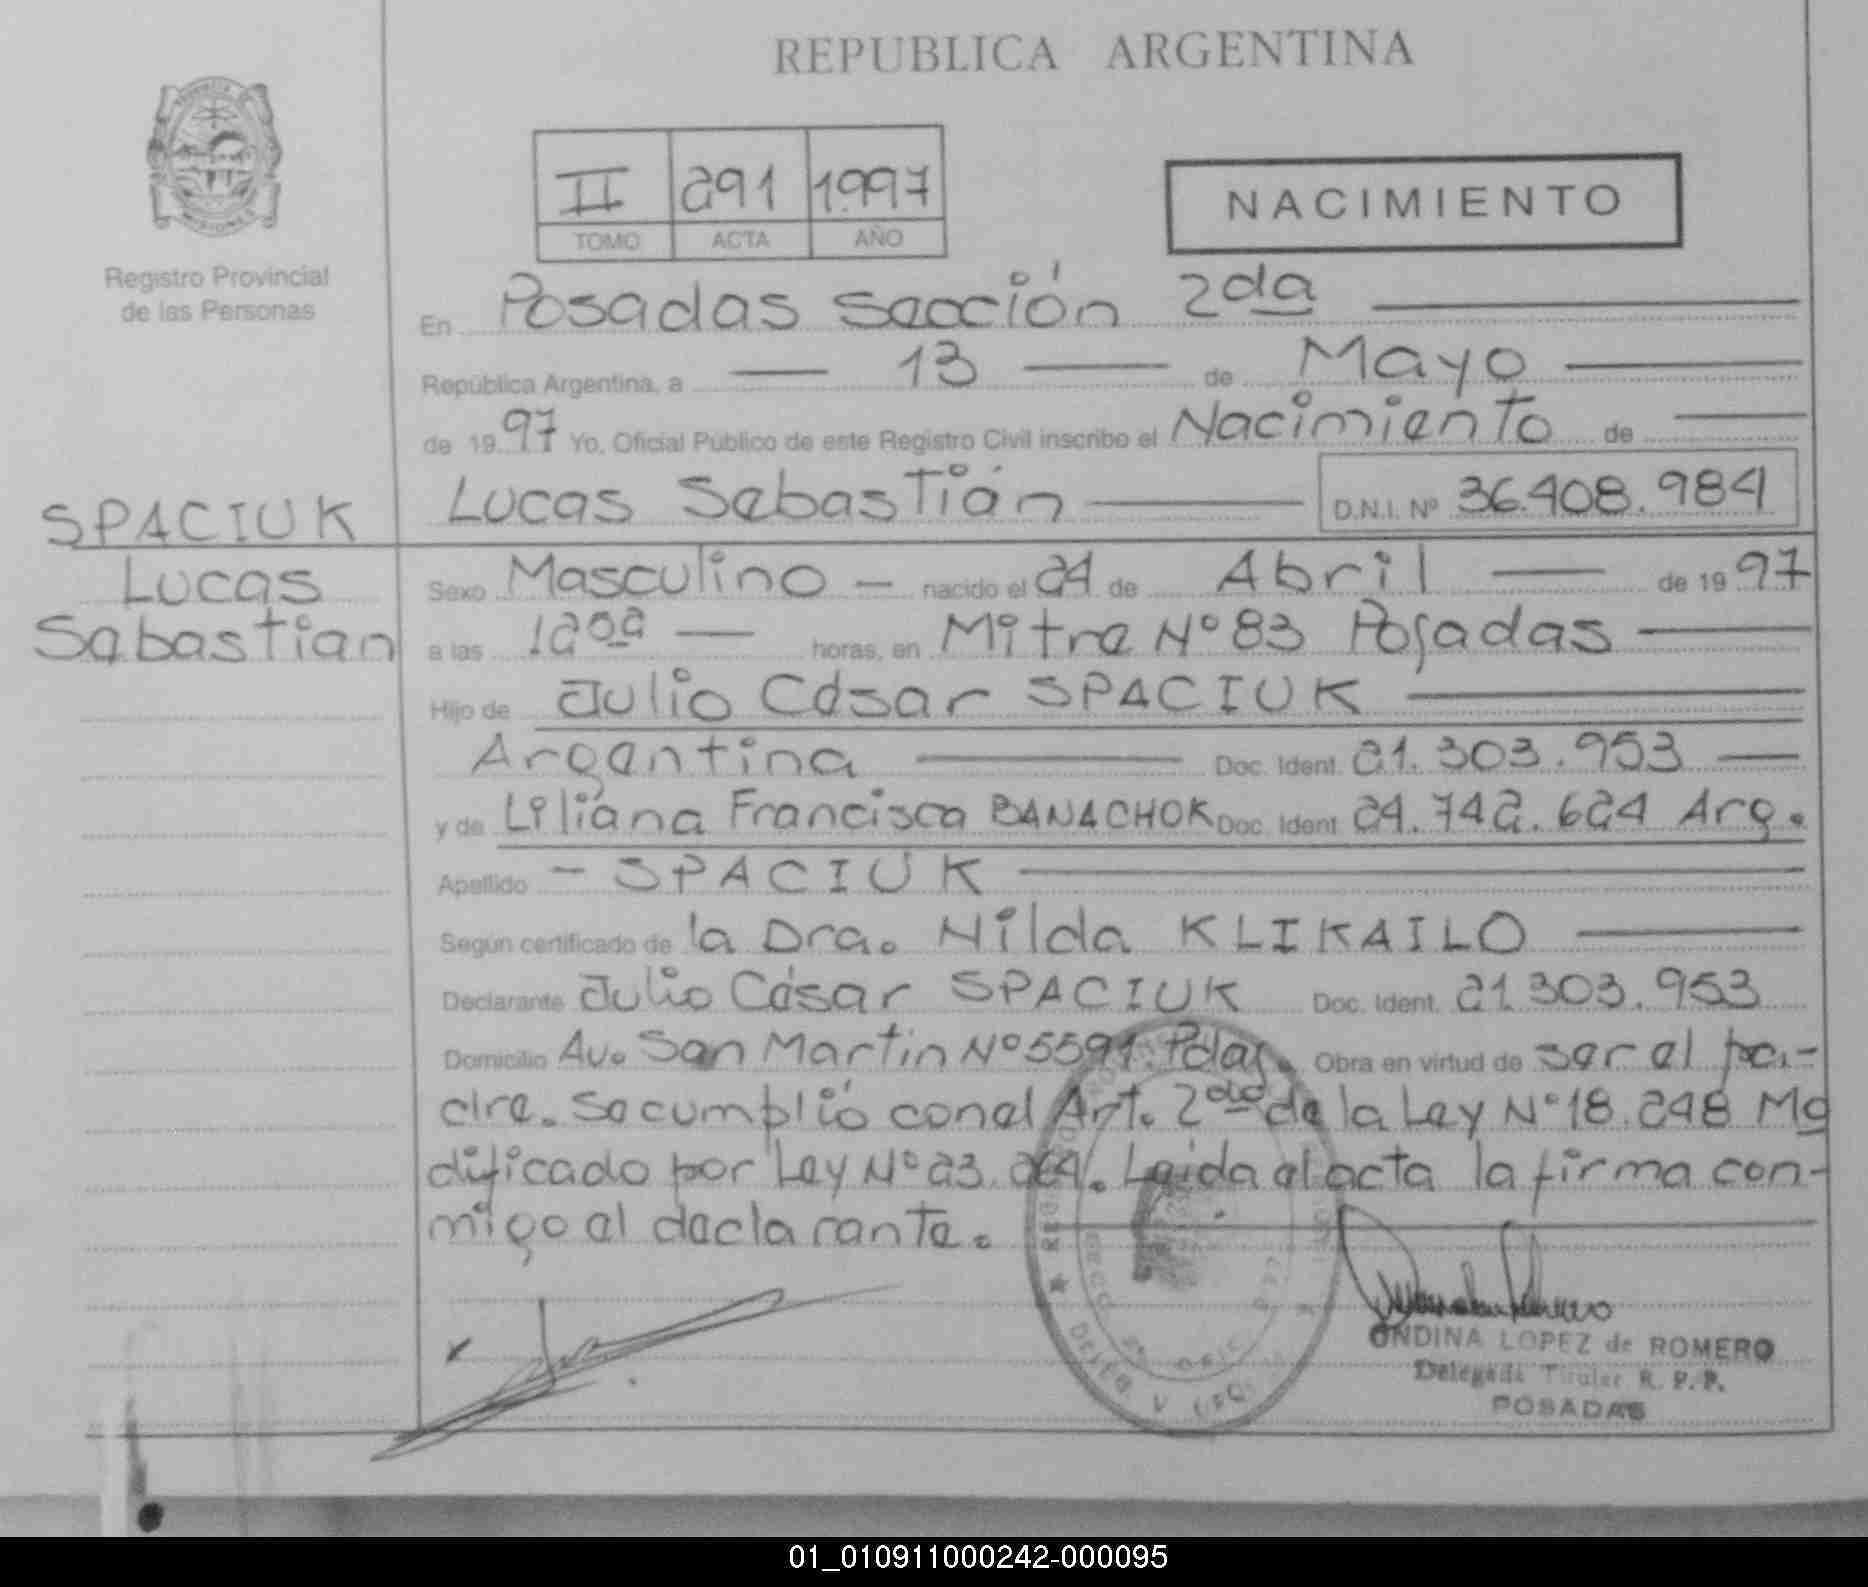 REPUBLICA ARGENTINA
II 291 1997
TOMO ACTA AÑO
NACIMIENTO
Registro Provincial
de las Personas
En Posadas sección 2da
República Argentina, a 13 de Mayo
de 1997 Yo, Oficial Público de este Registro Civil inscribo el Nacimiento de
Lucas Sebastián D.N.I. Nº 36.408.984
SPACIUK
Lucas
Sebastian
Sexo Masculino nacido el 24 de Abril de 1997
a las 12 02 horas, en Mitre Nº 83 Posadas
Hijo de Julio César SPACIUK
Argentina Doc. Ident. 21.303.953
y de Liliana Francisca BANACHOK Doc. Ident. 24.742.624 Arg.
Apellido - SPACIUK
Según certificado de la Dra. Nilda KLIKAILO
Declarante Julio César SPACIUK Doc. Ident. 21.303.953
Domicilio Av. San Martin Nº 5591. Pdas. Obra en virtud de ser el pa-
dre. Se cumplió con el Art. 2do de la Ley Nº 18.248 Mo
dificado por Ley Nº 23.264. Leída el acta la firma con-
migo el declarante.
ONDINA LOPEZ de ROMERO
Delegada Titular R. P. P.
POSADAS
01_010911000242-000095